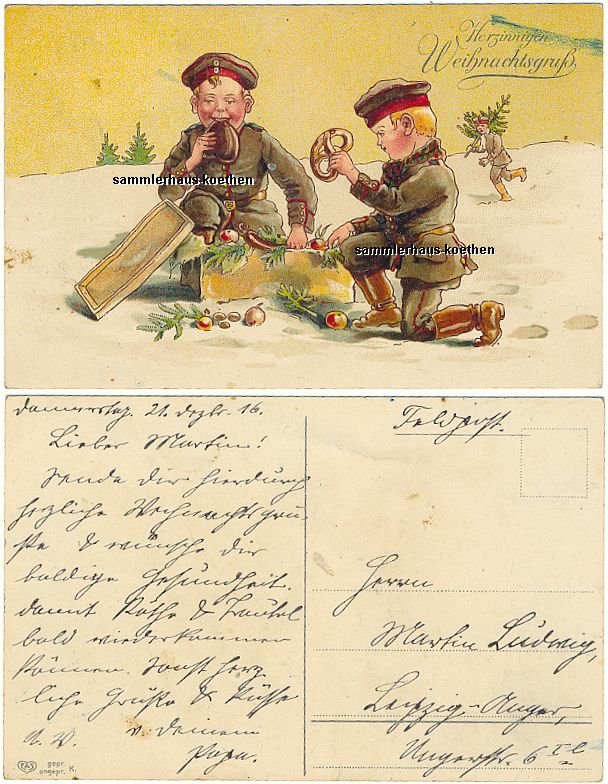 Herzinnigen
Weihnachtsgruß
sammlerhaus-koethen
sammlerhaus-koethen
Donnerstag. 21. Dezbr. 16.
Lieber Martin!
Sende dir hierdurch
herzliche Weihnachtsgrü-
ße & wünsche dir
baldige Gesundheit.
damit Käthe &
bald wiederkommen
können. Sonst herz
liche Grüße & Küsse
v. deinem
Papa.
EAS
gepr.
ungepr. K.
Feldpost.
Herrn
Martin Ludwig,
Leipzig-Anger,
Ungerstr. 6